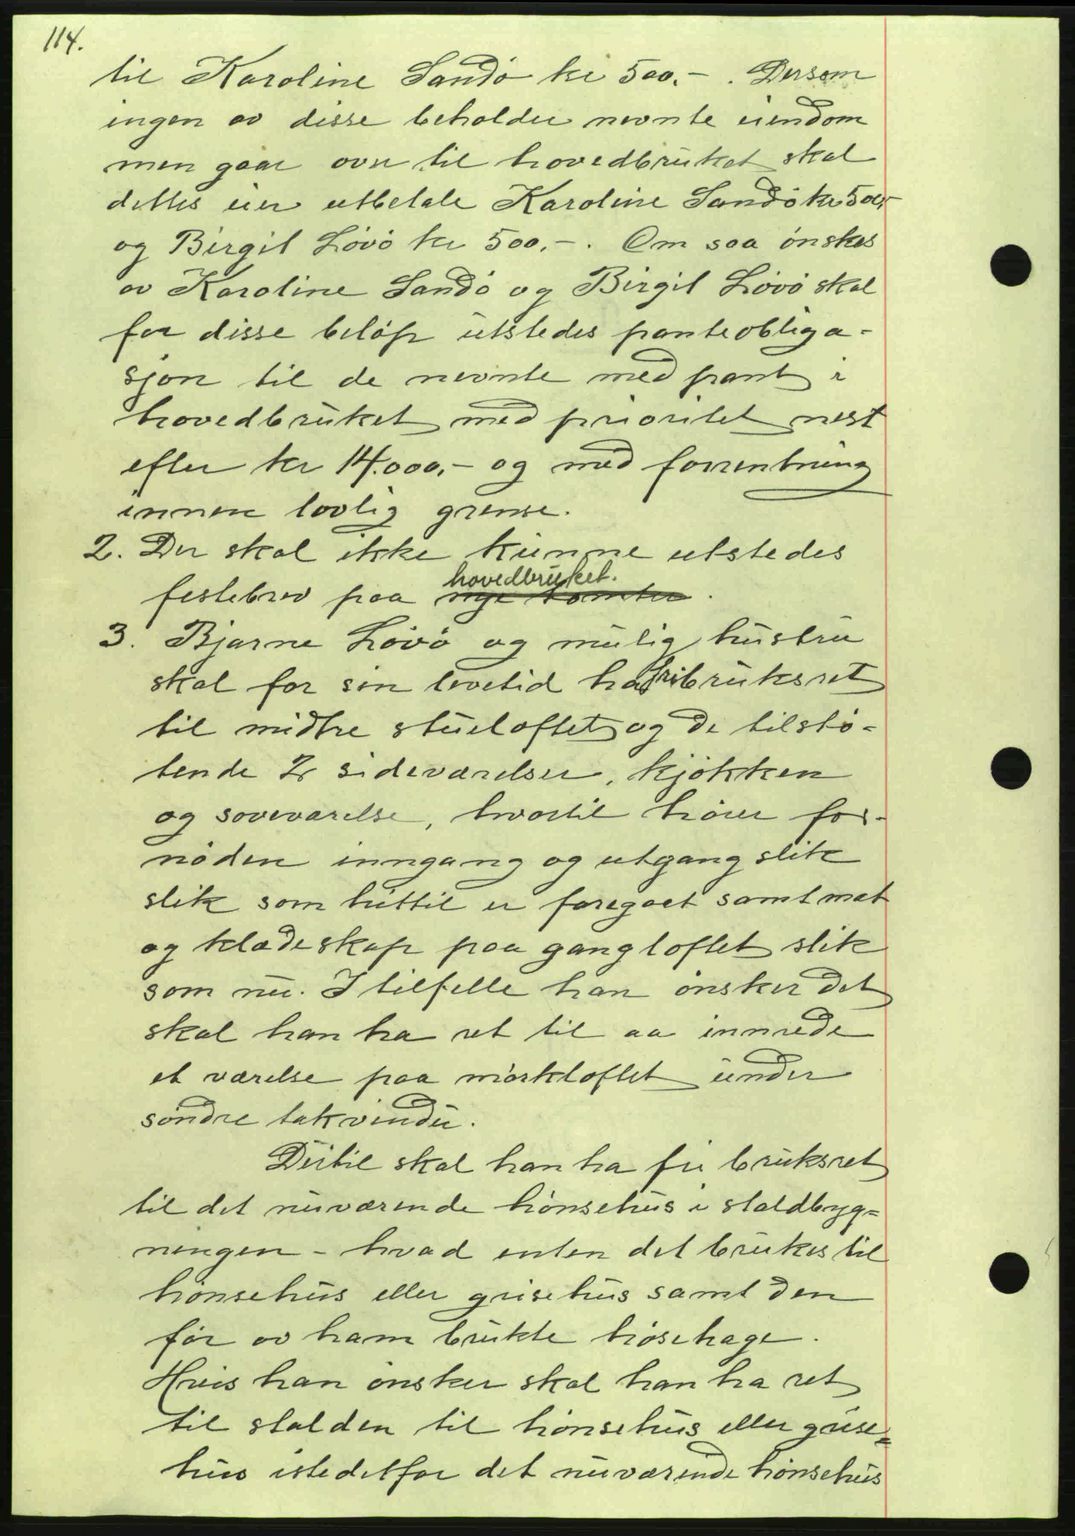 114.
til Karoline Sandö kr 500.- . Dersom
ingen av disse beholder nevnte eiendom
men gaar over til hovedbruket skal
dettes eier utbetale Karoline Sandö kr 500,-
og Birgit Lövö kr 500.- . Om saa önskes
av Karoline Sandö og Birgit Lövö skal
for disse belöp utstedes panteobliga-
sjon til de nevnte med pant i
hovedbruket med prioritet nest
efter kr 14.000,- og med forrentning
innen lovlig grense.
2. Der skal ikke kunne utstedes
hovedbruket.
festebrev paa nye tomter .
3. Bjarne Lövö og mulig hustru
skal for sin levetid ha fri bruksret
til midtre stueloftet og de tilstö-
tende 2 sideværelser, kjökken
og soveværelse, hvortil hörer for-
nöden inngang og utgang slik
slik som hittil er foregaet samt mat
og klædeskap paa gangloftet slik
som nu. I tilfelle han önsker det
skal han ha ret til aa innrede
et værelse paa mörkloftet under
söndre takvindu.
Dertil skal han ha fri bruksret
til det nuværende hönsehus i staldbyg=
ningen - hvad enten det brukes til
hönsehus eller grisehus samt den
för av ham brukte hösehage.
Hvis han önsker skal han ha ret
til stalden til hönsehus eller grise=
hus istedetfor det nuværende hönsehus